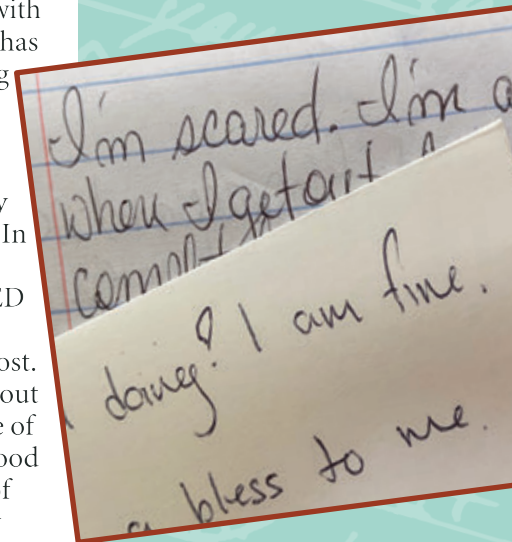 with
has
g
y
In
ED
ost.
out
e of
ood
of
I'm scared. I'm a
when I get out
compl
doing? I am fine.
a bless to me.